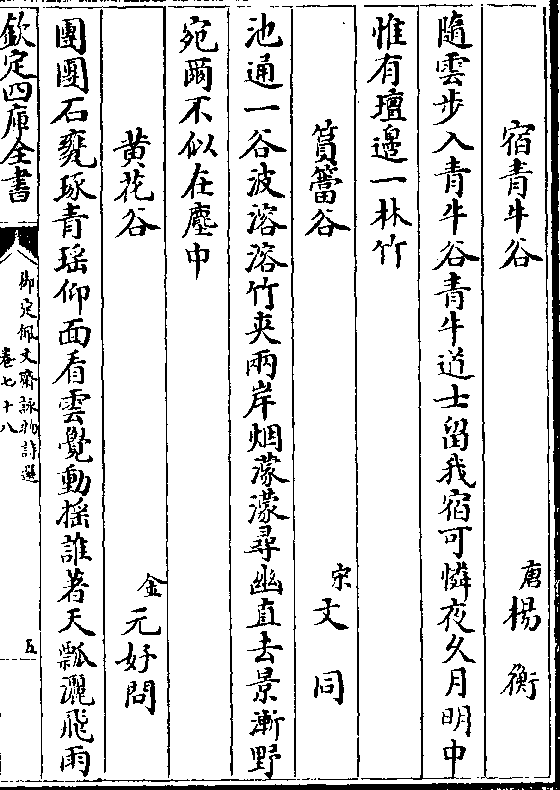 宿青牛谷
唐楊衡
隨雲步入青牛谷青牛道士留我宿可憐夜久月明中
惟有壇邊一林竹
篔簹谷
宋文同
池通一谷波溶溶竹夾兩岸烟濛濛尋幽直去景漸野
宛爾不似在塵中
黄花谷
金元好問
團團石甕琢青瑶仰面看雲覺動揺誰著天瓢灑飛雨
欽定四庫全書
御定佩文齋詠物詩選
卷七十八
五